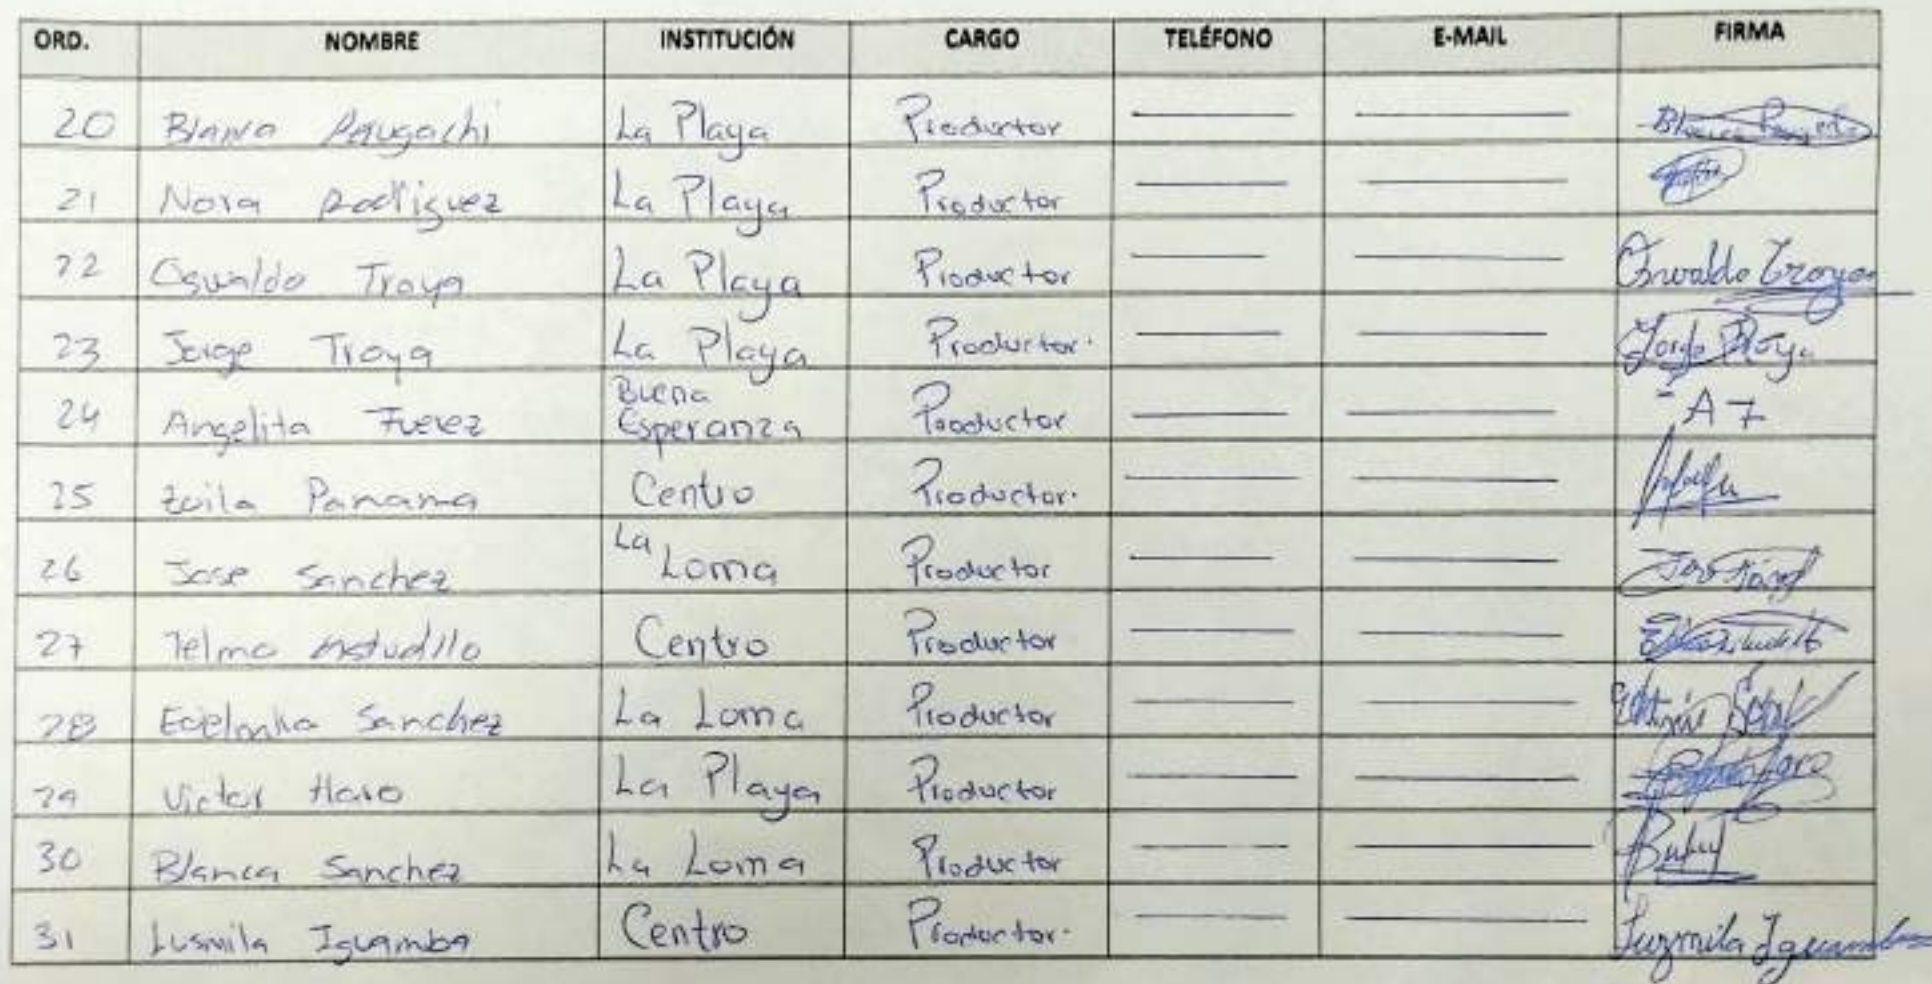 ORD. NOMBRE INSTITUCIÓN CARGO TELÉFONO E-MAIL FIRMA
20 La Playa Productor
21 Nora Rodriguez La Playa Productor
22 Oswaldo Troya La Playa Productor Oswaldo Troya
23 Jorge Troya La Playa Productor. Jorge Troya
24 Angelita Fuerez Buena Esperanza Productor A F
25 Zoila Panama Centro Productor.
26 Jose Sanchez La Loma Productor
27 Telmo Astudillo Centro Productor
28 Sanchez La Loma Productor
29 Victor Haro La Playa Productor
30 Blanca Sanchez La Loma Productor
31 Lusmila Iguamba Centro Productor. Luzmila Iguamba